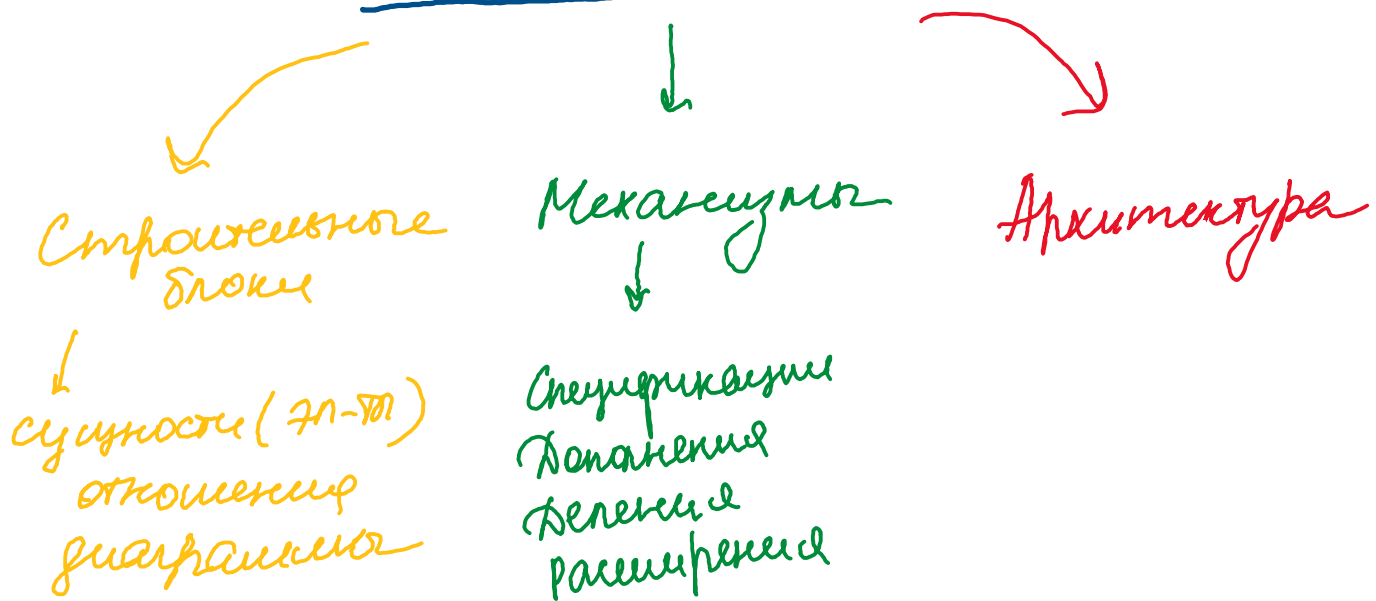 Строительные
блоки
сущности (эл-ты)
отношения
диаграммы
Механизмы
Спецификации
Дополнения
Деления
расширения
Архитектура